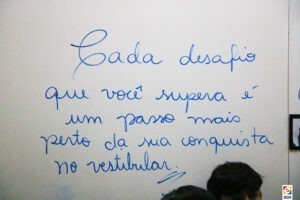 Cada desafio
que você supera é
um passo mais
perto da sua conquista
no vestibular.